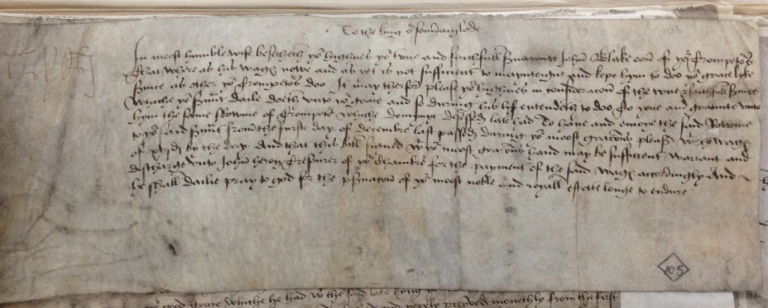 To the king oure souveraigne lorde
In moost humble wise besecheth yor highnes yor true and faithfull servaunte John Blake oon of yor Trompeters
That where as his wage nowe and as yet is not sufficient to mayntaigne and kepe hym to doo yor grace lyke
service as other yor trompeters doo It may therfor please yor highnes in consideracion of the true faithfull service
whiche yor servant dailie doeth unto yor grace and so during his lif entendeth to doo to yeve and graunte unto
hym the same Rowme of Trompete whiche Domynyc decessed late had To have and enioye the said Rowme
to yor said servant from the first day of Decembre last passed during yor moost gracious pleasr wt the wage
of by the day And that this bill signed wt yor moost gracious hand may be sufficient warrant and
discharge unto John Heron Tresourer of yor Chambre for the payment of the said wage accordingly And
he shall dailie pray to god for the preservacion of yor moost noble and royall estate longe to endure
105
grace whiche he had the said late king
monthly from the first